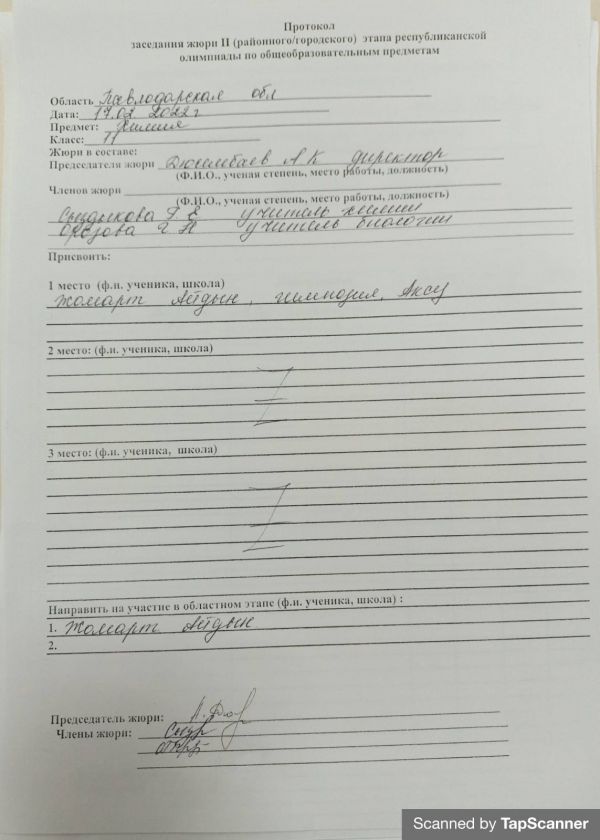 Протокол
заседания жюри II (районного/городского) этапа республиканской
олимпиады по общеобразовательным предметам
Область Павлодарская обл
Дата: 17.02 2022 г
Предмет: Химия
Класс: 11
Жюри в составе:
Председателя жюри Дюсембаев А К директор
(Ф.И.О., ученая степень, место работы, должность)
Членов жюри
(Ф.И.О., ученая степень, место работы, должность)
Сыздыкова Г Е учитель химии
учитель биологии
Присвоить:
1 место (ф.и. ученика, школа)
Жомарт Айдын, гимназия, Аксу
2 место: (ф.и. ученика, школа)
3 место: (ф.и. ученика, школа)
Направить на участие в областном этапе (ф.и. ученика, школа) :
1. Жомарт Айдын
2.
Председатель жюри:
Члены жюри:
Scanned by TapScanner